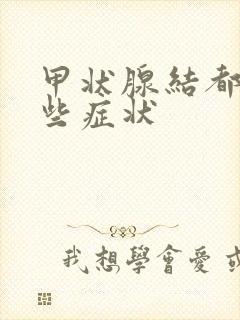 甲状腺結都
些症状
我想學會愛